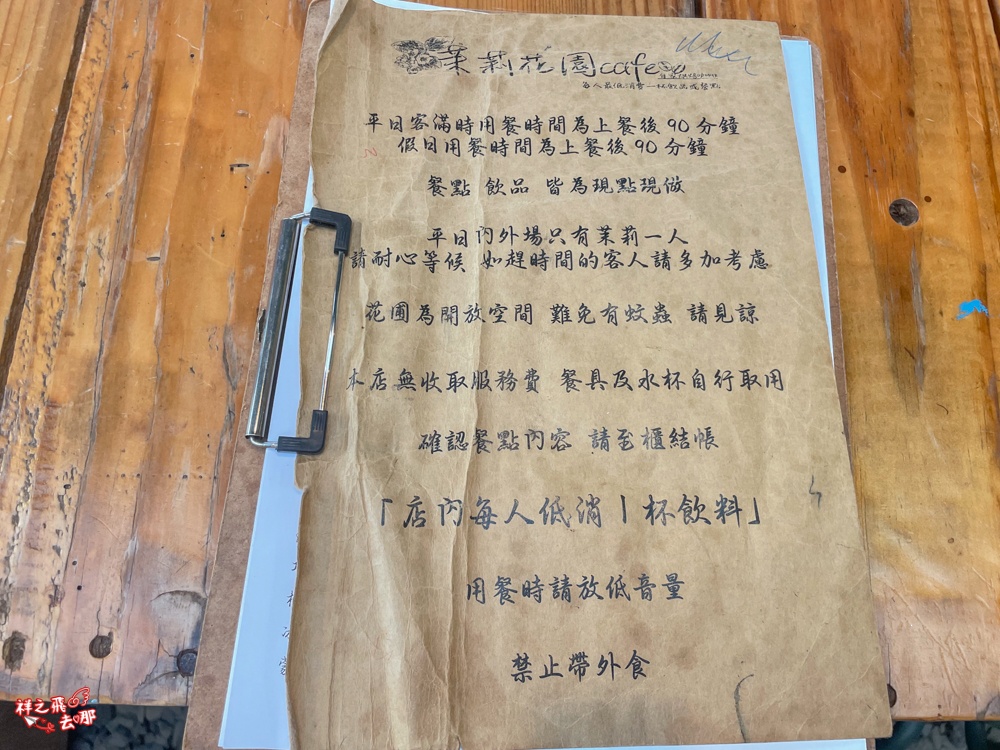 茉莉花園cafe
每人最低消費一杯飲品或餐點
平日客滿時用餐時間為上餐後90分鐘
假日用餐時間為上餐後90分鐘
餐點 飲品 皆為現點現做
平日內外場只有茉莉一人
請耐心等候 如趕時間的客人請多加考慮
花圃為開放空間 難免有蚊蟲 請見諒
本店無收取服務費 餐具及水杯自行取用
確認餐點內容 請至櫃結帳
「店內每人低消1杯飲料」
用餐時請放低音量
禁止帶外食
祥之飛
去哪